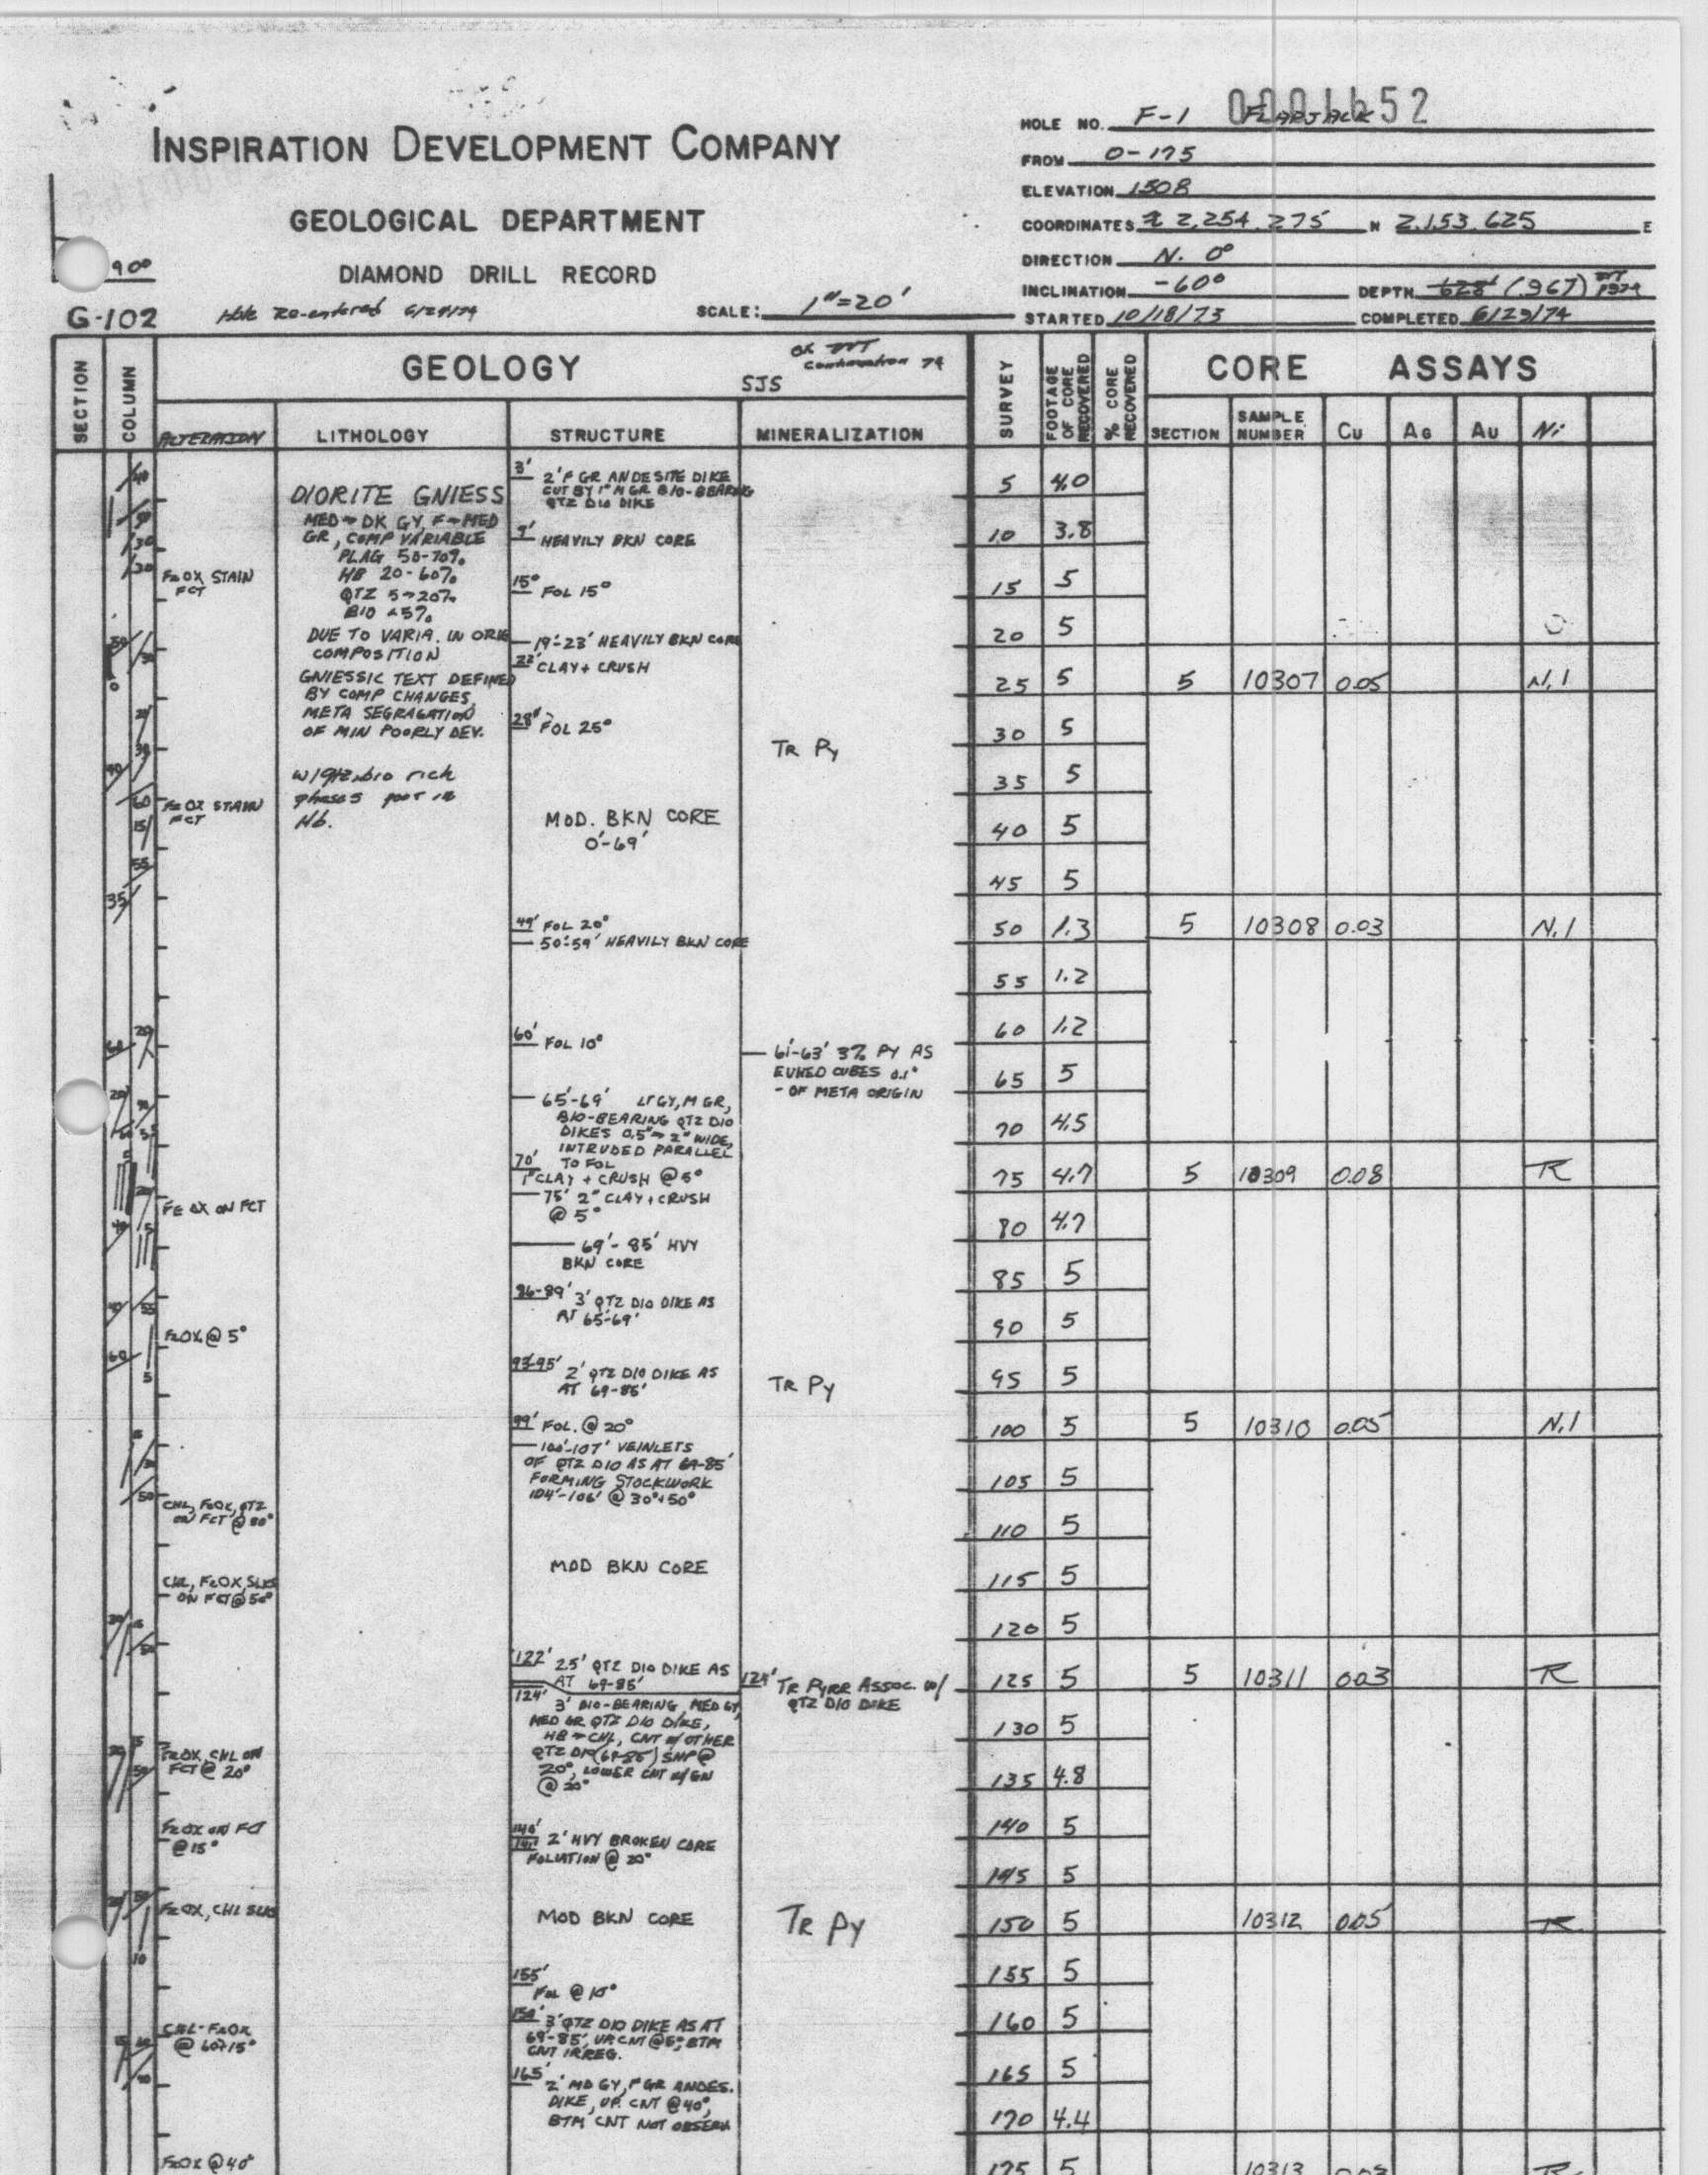 0001652
INSPIRATION DEVELOPMENT COMPANY
GEOLOGICAL DEPARTMENT
DIAMOND DRILL RECORD
90°
G-102
Hole Re-entered 6/29/74
SCALE: 1"=20'
HOLE NO. F-1 FLAPJACK
FROM 0-175
ELEVATION 1508
COORDINATES ≈ 2,254,275 N 2,153,625 E
DIRECTION N. 0°
INCLINATION -60°
DEPTH 628' (967) 1974
STARTED 10/18/73
COMPLETED 6/29/74
SECTION
COLUMN
GEOLOGY
SJS
continuation 74
SURVEY
FOOTAGE OF CORE RECOVERED
% CORE RECOVERED
CORE ASSAYS
ALTERATION
LITHOLOGY
STRUCTURE
MINERALIZATION
SECTION
SAMPLE NUMBER
Cu
Ag
Au
Ni
FeOX STAIN
FCT
FeOX STAIN
FCT
FE OX ON FCT
FeOX @ 5°
CHL, FeOX, QTZ
ON FCT @ 80°
CHL, FeOX, SLKS
ON FCT @ 50°
FeOX, CHL ON
FCT @ 20°
FeOX ON FCT
@ 15°
FeOX, CHL SLKS
CHL-FeOX
@ 60+15°
FeOX @ 40°
DIORITE GNIESS
MED→DK GY, F→MED
GR, COMP VARIABLE
PLAG 50-70%
HB 20-60%
QTZ 5→20%
BIO <5%
DUE TO VARIA. IN ORIG
COMPOSITION
GNIESSIC TEXT DEFINED
BY COMP CHANGES,
META SEGRAGATION
OF MIN POORLY DEV.
w/qtz, bio rich
phases poor in
Hb.
3' 2' F GR ANDESITE DIKE
CUT BY 1" M GR BIO-BEARING
QTZ DIO DIKE
9' HEAVILY BKN CORE
15° FOL 15°
19'-23' HEAVILY BKN CORE
22' CLAY + CRUSH
28' FOL 25°
MOD. BKN CORE
0'-69'
49' FOL 20°
50'-59' HEAVILY BKN CORE
60' FOL 10°
65'-69' LT GY, M GR,
BIO-BEARING QTZ DIO
DIKES 0.5"→2" WIDE,
INTRUDED PARALLEL
TO FOL
70' 1" CLAY + CRUSH @ 5°
75' 2" CLAY + CRUSH
@ 5°
69'-85' HVY
BKN CORE
86-89' 3' QTZ DIO DIKE AS
AT 65-69'
93-95' 2' QTZ DIO DIKE AS
AT 69-85'
99' FOL. @ 20°
100'-107' VEINLETS
OF QTZ DIO AS AT 69-85'
FORMING STOCKWORK
104'-106' @ 30°+50°
MOD BKN CORE
122' 2.5' QTZ DIO DIKE AS
AT 69-85'
124' 3' BIO-BEARING, MED GY,
MED GR QTZ DIO DIKE,
HB→CHL, CNT w/ OTHER
QTZ DIO (69-85) SHP @
20°, LOWER CNT w/ GN
@ 20°
140'
141' 2' HVY BROKEN CORE
FOLIATION @ 20°
MOD BKN CORE
155' FOL @ 10°
158' 3' QTZ DIO DIKE AS AT
69-85', UP CNT @ 5°, BTM
CNT IRREG.
165' 2' MD GY, F GR ANDES.
DIKE, UP. CNT @ 40°,
BTM CNT NOT OBSERV
TR Py
61'-63' 3% PY AS
EUHED CUBES 0.1"
- OF META ORIGIN
TR Py
124' TR PYRR ASSOC. w/
QTZ DIO DIKE
TR Py
5 4.0
10 3.8
15 5
20 5
25 5 5 10307 0.05 N.1
30 5
35 5
40 5
45 5
50 1.3 5 10308 0.03 N.1
55 1.2
60 1.2
65 5
70 4.5
75 4.7 5 10309 0.08 TR
80 4.7
85 5
90 5
95 5
100 5 5 10310 0.05 N.1
105 5
110 5
115 5
120 5
125 5 5 10311 0.03 TR
130 5
135 4.8
140 5
145 5
150 5 10312 0.05 TR
155 5
160 5
165 5
170 4.4
175 5 10313 0.03 TR